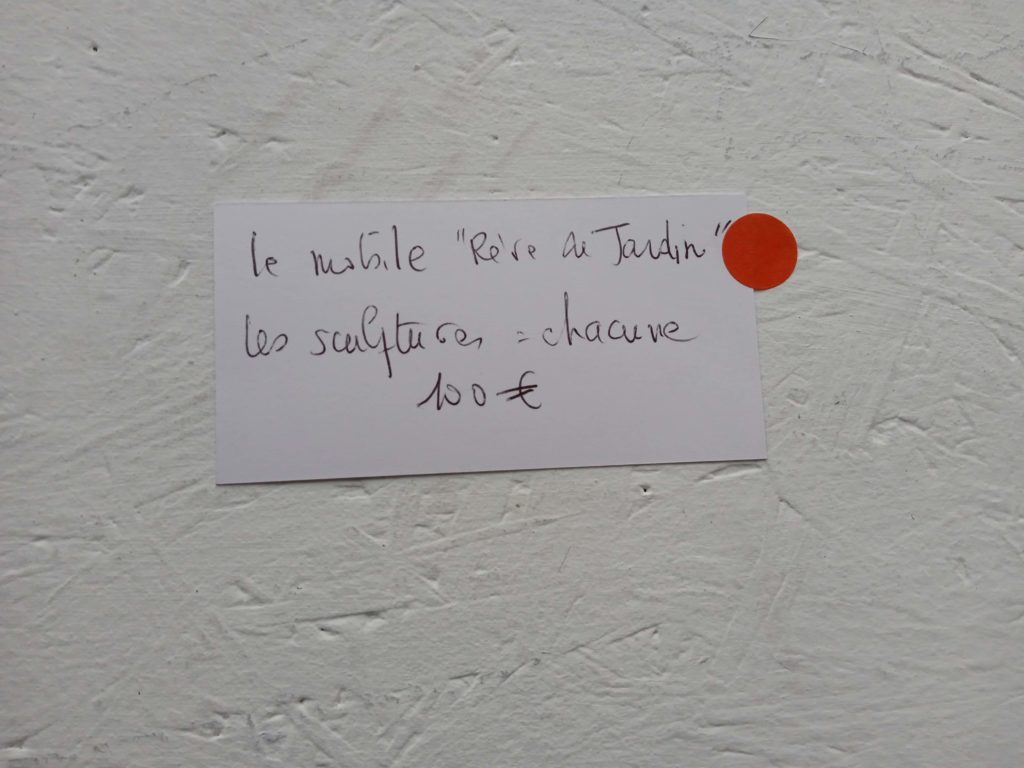 le mobile "Rêve de Jardin"
les sculptures = chacune
100 €